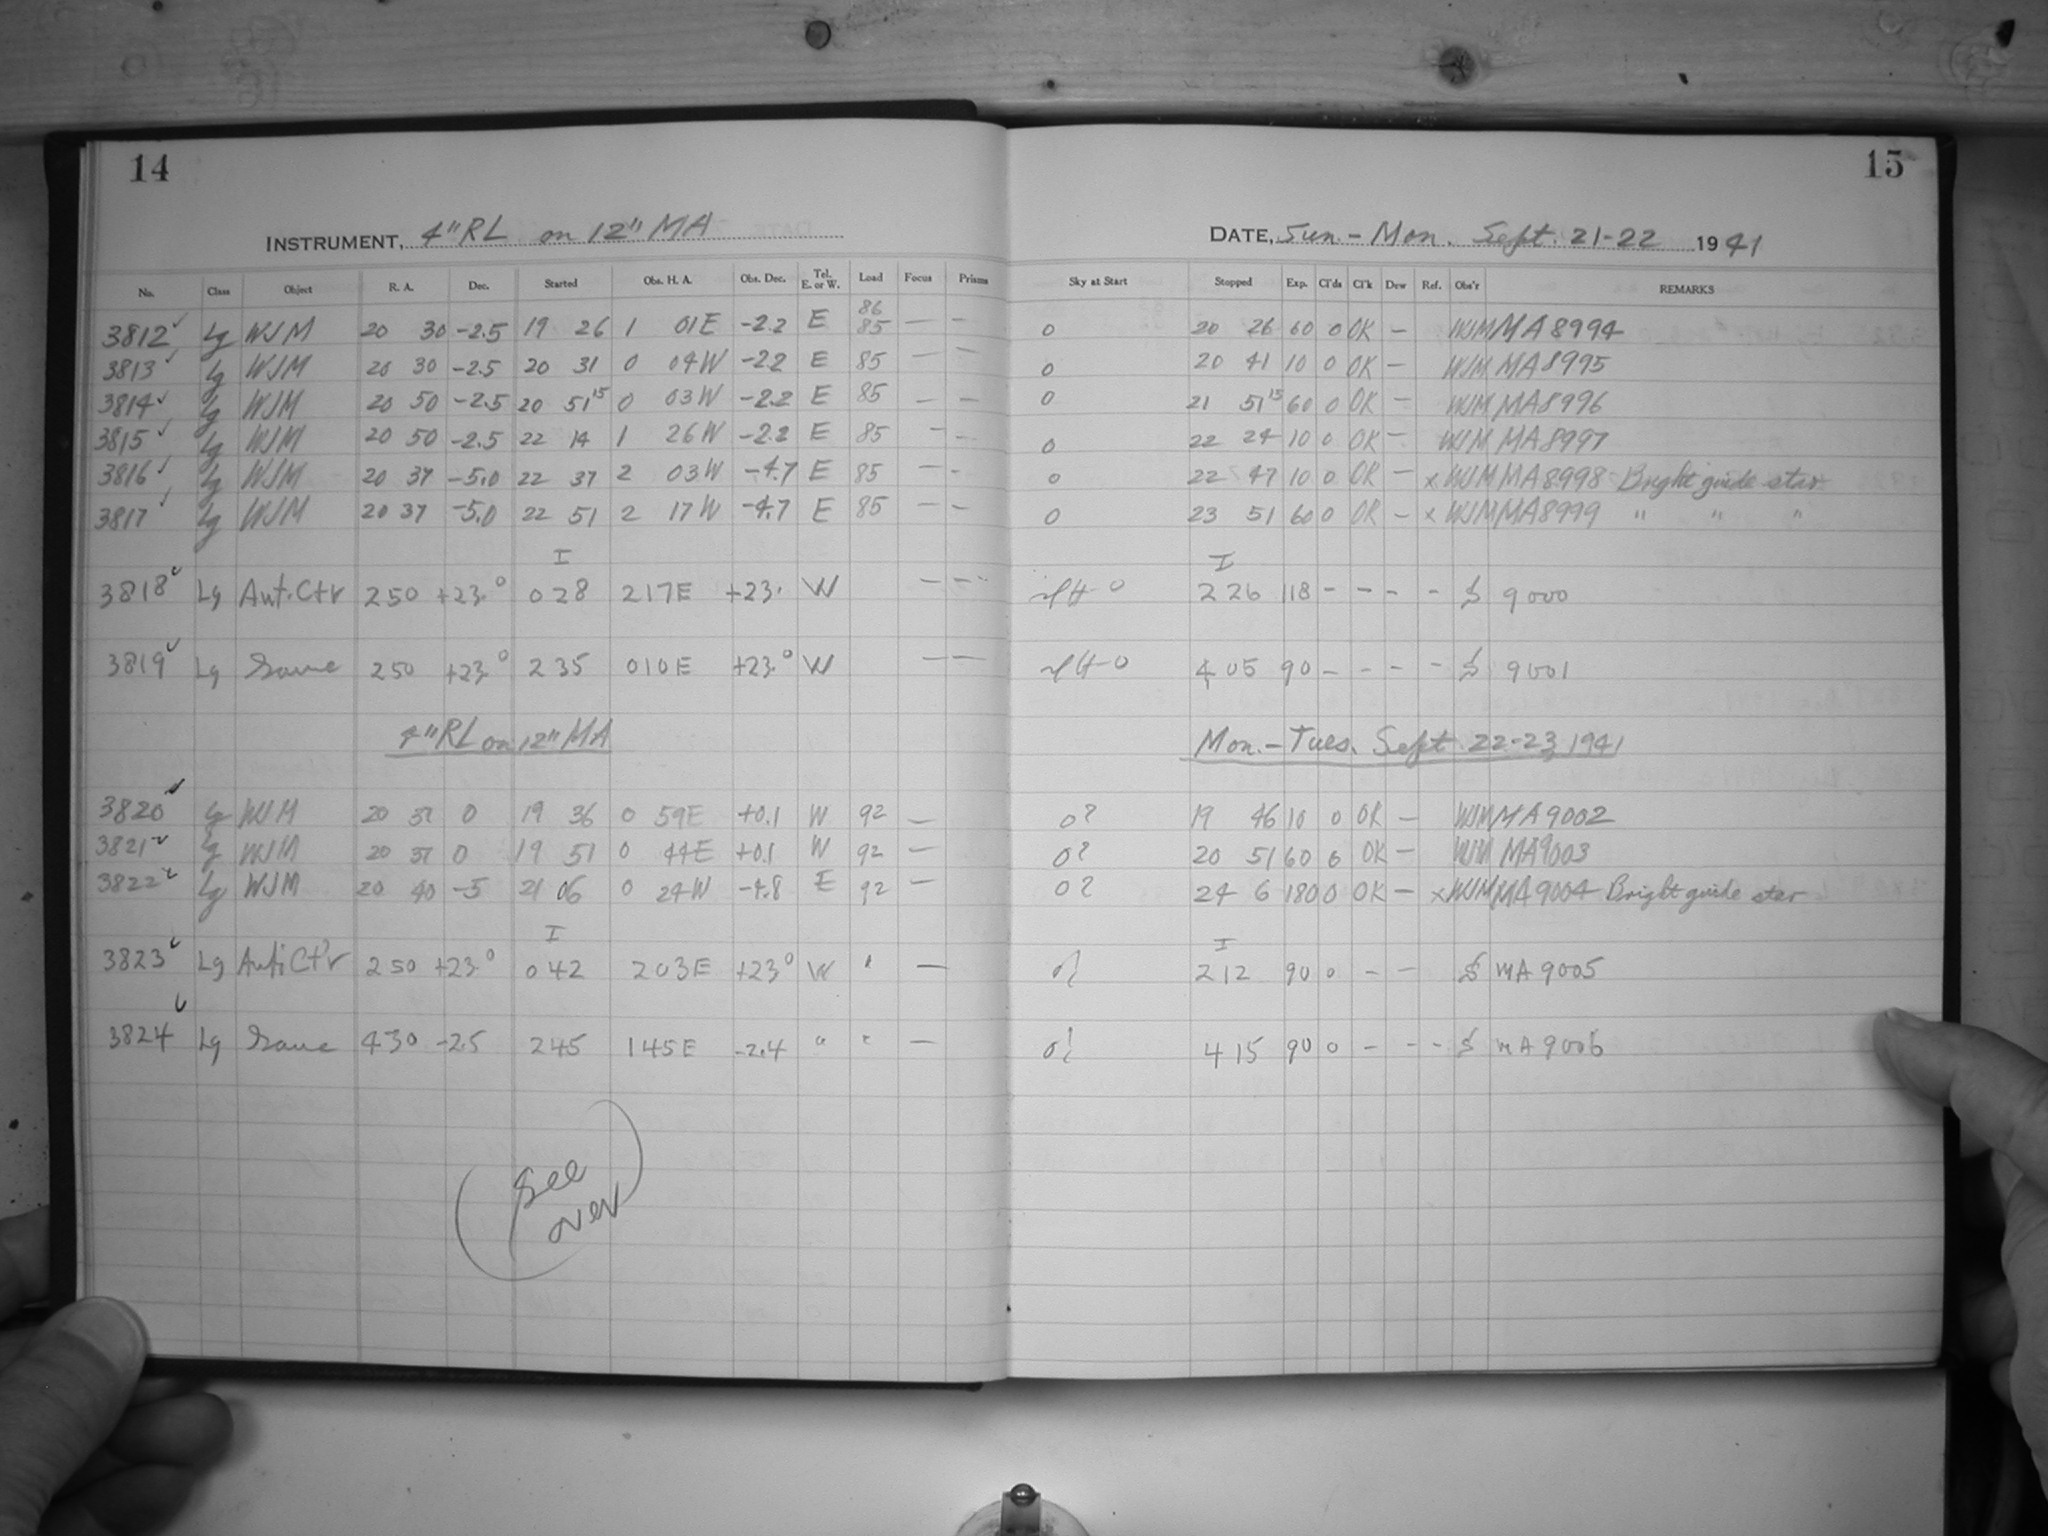 14
INSTRUMENT, 4"RL on 12" MA
No. Class Object R. A. Dec. Started Obs. H. A. Obs. Dec. Tel. E. or W. Load Focus Prisms
86
3812 ✓ Lg WJM 20 30 -2.5 19 26 1 01E -2.2 E 85 — —
3813 ✓ Lg WJM 20 30 -2.5 20 31 0 04W -2.2 E 85 — —
3814 ✓ Lg WJM 20 50 -2.5 20 51 15 0 03W -2.2 E 85 — —
3815 ✓ Lg WJM 20 50 -2.5 22 14 1 26W -2.2 E 85 — —
3816 ✓ Lg WJM 20 37 -5.0 22 37 2 03W -4.7 E 85 — —
3817 ✓ Lg WJM 20 37 -5.0 22 51 2 17W -4.7 E 85 — —
I
3818 ✓ Lg Ant.Ctr 250 +23.° 028 217E +23. W — —
3819 ✓ Lg Same 250 +23.° 235 010E +23.° W — —
4"RL on 12" MA
3820 ✓ Lg WJM 20 37 0 19 36 0 59E +0.1 W 92 —
3821 ✓ Lg WJM 20 37 0 19 51 0 44E +0.1 W 92 —
3822 ✓ Lg WJM 20 40 -5 21 06 0 24W -4.8 E 92 —
I
3823 ✓ Lg AntiCtr 250 +23.° 042 203E +23° W " —
3824 ✓ Lg Same 430 -2.5 245 145E -2.4 " " —
(See
over)
15
DATE, Sun - Mon. Sept. 21-22 1941
Sky at Start Stopped Exp. Cl'ds Cl'k Dew Ref. Obs'r REMARKS
0 20 26 60 0 OK — WJM MA8994
0 20 41 10 0 OK — WJM MA8995
0 21 51 15 60 0 OK — WJM MA8996
0 22 24 10 0 OK — WJM MA8997
0 22 47 10 0 OK — x WJM MA8998 Bright guide star
0 23 51 60 0 OK — x WJM MA8999 " " "
I
0 226 118 - - - - 9000
0 405 90 - - - - 9001
Mon. - Tues. Sept 22-23, 1941
0? 19 46 10 0 OK — WJM MA9002
0? 20 51 60 0 OK — WJM MA9003
0? 24 6 180 0 OK — x WJM MA9004 Bright guide star
I
0? 212 90 0 - - MA 9005
0? 415 90 0 - - - MA 9006